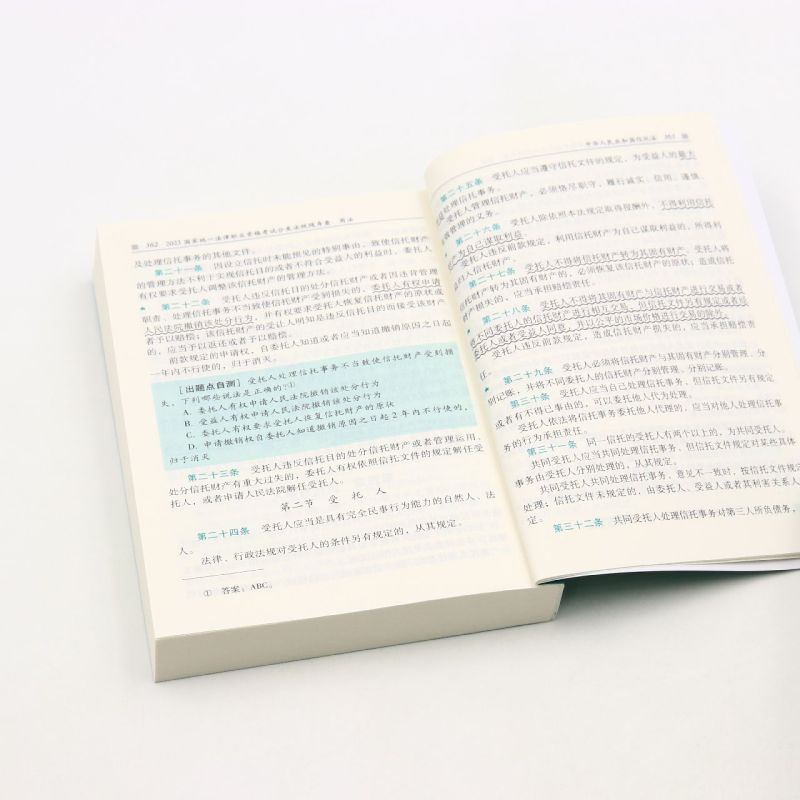 362 2023 国家统一法律职业资格考试分类法规随身查 商法
及处理信托事务的其他文件。
第二十一条 因设立信托时未能预见的特别事由，致使信托财产
的管理方法不利于实现信托目的或者不符合受益人的利益时，委托人
有权要求受托人调整该信托财产的管理方法。
★ 第二十二条 受托人违反信托目的处分信托财产或者因违背管理
职责、处理信托事务不当致使信托财产受到损失的，委托人有权申请
人民法院撤销该处分行为，并有权要求受托人恢复信托财产的原状或
者予以赔偿；该信托财产的受让人明知是违反信托目的而接受该财产
的，应当予以返还或者予以赔偿。
前款规定的申请权，自委托人知道或者应当知道撤销原因之日起
一年内不行使的，归于消灭。
[出题点自测] 受托人处理信托事务不当致使信托财产受到损
失，下列哪些说法是正确的?①
A. 委托人有权申请人民法院撤销该处分行为
B. 受益人有权申请人民法院撤销该处分行为
C. 委托人有权要求受托人恢复信托财产的原状
D. 申请撤销权自委托人知道撤销原因之日起2年内不行使的，
归于消灭
第二十三条 受托人违反信托目的处分信托财产或者管理运用、
处分信托财产有重大过失的，委托人有权依照信托文件的规定解任受
托人，或者申请人民法院解任受托人。
第二节 受 托 人
第二十四条 受托人应当是具有完全民事行为能力的自然人、法
人。
法律、行政法规对受托人的条件另有规定的，从其规定。
① 答案：ABC。
中华人民共和国信托法 363
第二十五条 受托人应当遵守信托文件的规定，为受益人的最大
处理信托事务。
受托人管理信托财产，必须恪尽职守，履行诚实、信用、谨慎、
管理的义务。
第二十六条 受托人除依照本法规定取得报酬外，不得利用信托
为自己谋取利益。
受托人违反前款规定，利用信托财产为自己谋取利益的，所得利
归入信托财产。
第二十七条 受托人不得将信托财产转为其固有财产。受托人将
财产转为其固有财产的，必须恢复该信托财产的原状；造成信托
产损失的，应当承担赔偿责任。
第二十八条 受托人不得将其固有财产与信托财产进行交易或者
将不同委托人的信托财产进行相互交易，但信托文件另有规定或者经
委托人或者受益人同意，并以公平的市场价格进行交易的除外。
受托人违反前款规定，造成信托财产损失的，应当承担赔偿责
任。
★ 第二十九条 受托人必须将信托财产与其固有财产分别管理、分
别记账，并将不同委托人的信托财产分别管理、分别记账。
第三十条 受托人应当自己处理信托事务，但信托文件另有规定
或者有不得已事由的，可以委托他人代为处理。
受托人依法将信托事务委托他人代理的，应当对他人处理信托事
务的行为承担责任。
第三十一条 同一信托的受托人有两个以上的，为共同受托人。
共同受托人应当共同处理信托事务，但信托文件规定对某些具体
事务由受托人分别处理的，从其规定。
共同受托人共同处理信托事务，意见不一致时，按信托文件规定
处理；信托文件未规定的，由委托人、受益人或者其利害关系人
定。
第三十二条 共同受托人处理信托事务对第三人所负债务，